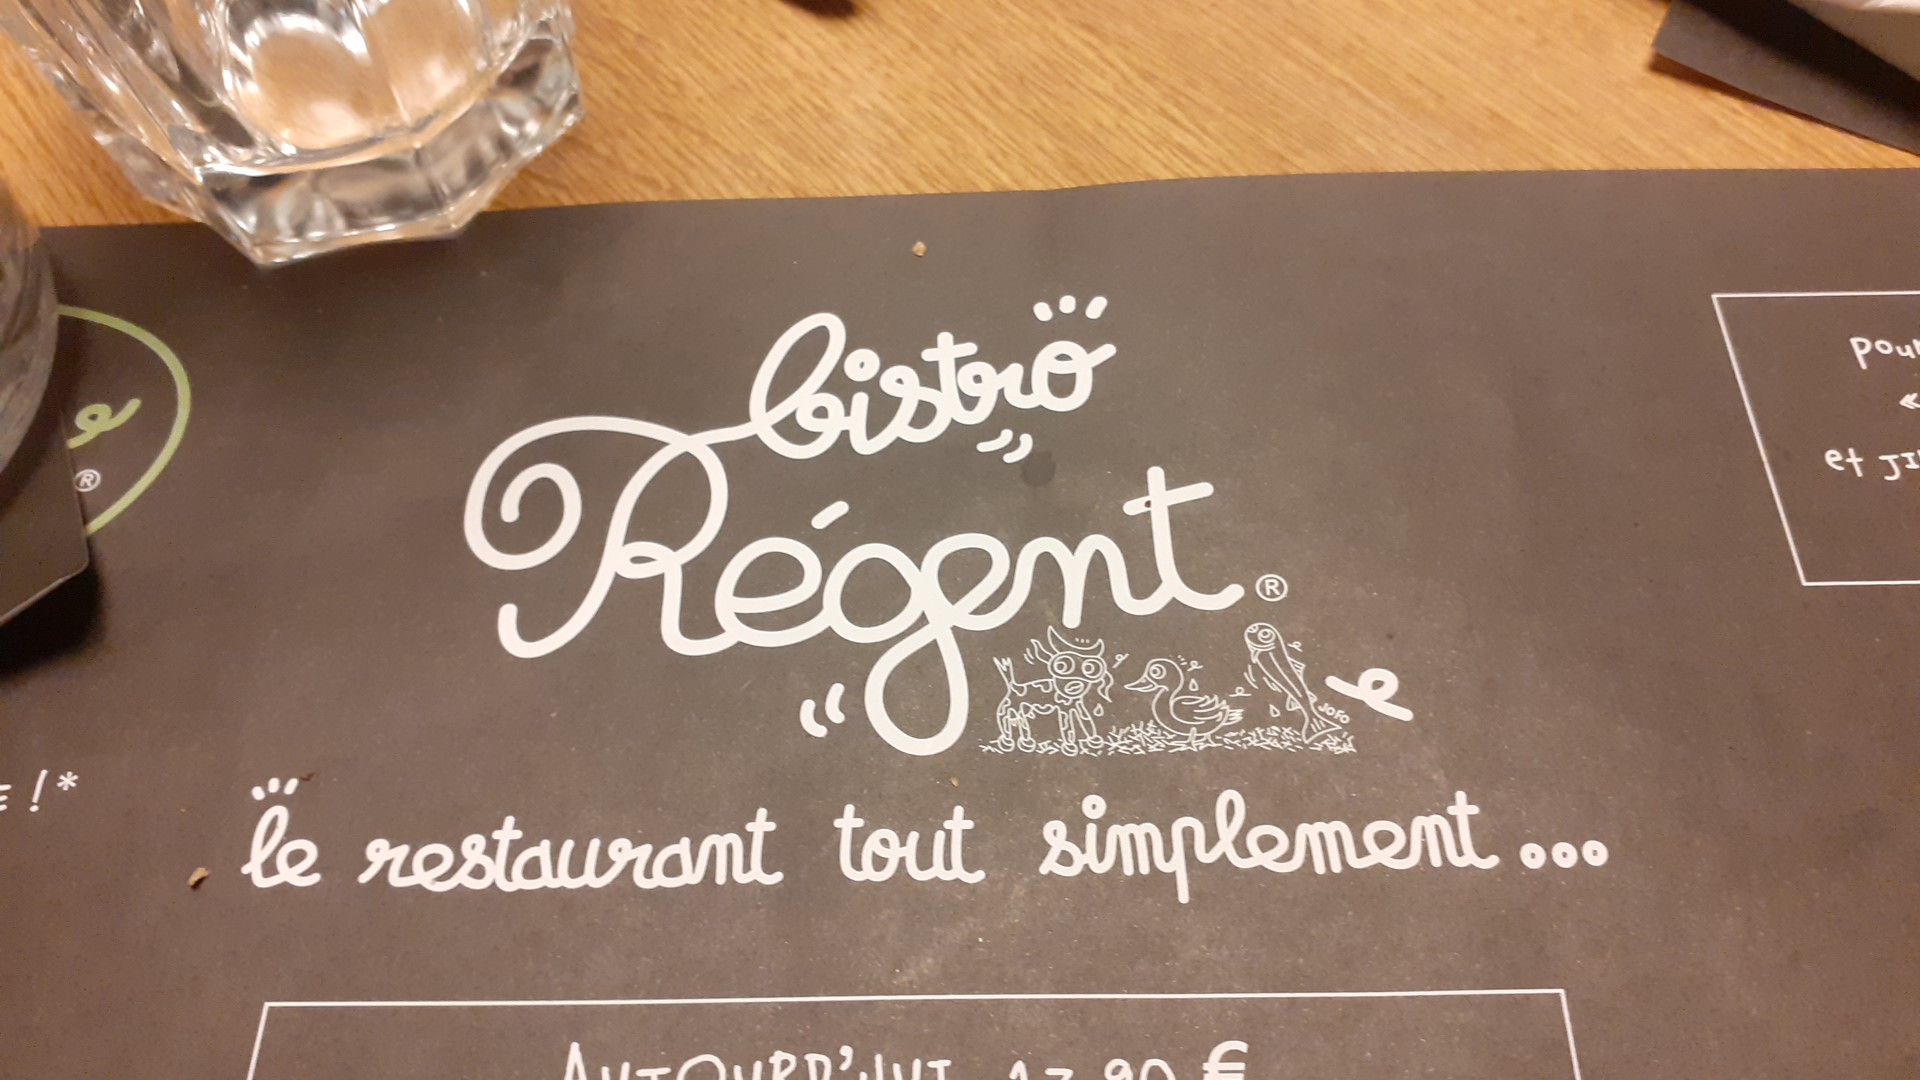 bistro
Régent ®
JOFO
le restaurant tout simplement...
®
E !*
«
et
AUJOURD'HUI
€